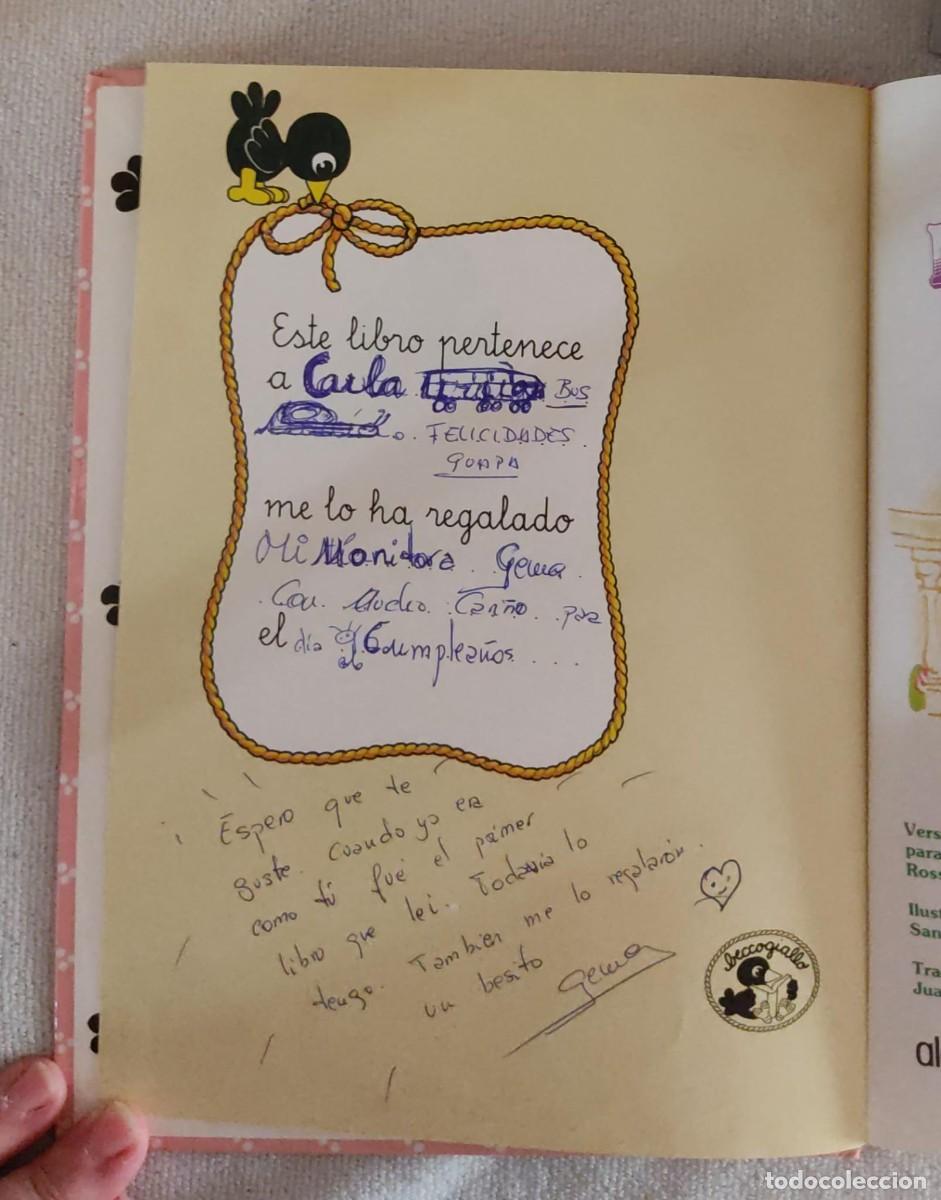 Este libro pertenece
a Carla BUS
FELICIDADES
GUAPA
me lo ha regalado
Mi Monitora Gema
Con Mucho Cariño para
el día Cumpleaños ...
Espero que te
guste. Cuando yo era
como tú fué el primer
libro que lei. Todavía lo
tengo. Tambien me lo regalarón.
un besito
Gema
beccogiallo
Vers
para
Ross
Ilust
San
Tra
Jua
al
todocoleccion